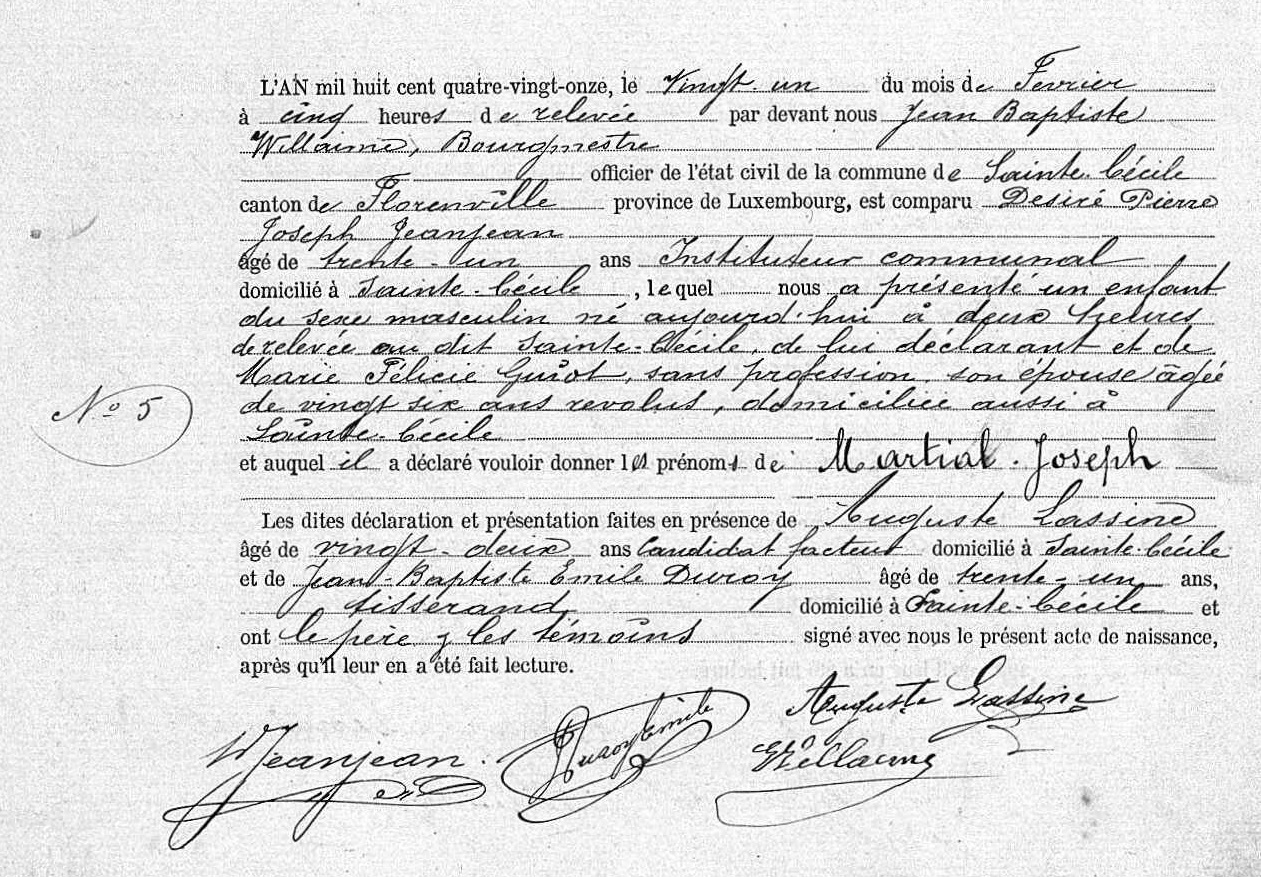 L'AN mil huit cent quatre-vingt-onze, le Vingt-un du mois de Fevrier
à cinq heures de relevée par devant nous Jean Baptiste
Willaime, Bourgmestre
officier de l'état civil de la commune de Sainte-Cécile
canton de Florenville province de Luxembourg, est comparu Desiré Pierre
Joseph Jeanjean
âgé de trente-un ans Instituteur communal
domicilié à Sainte-Cécile, lequel nous a présenté un enfant
du sexe masculin né aujourd'hui à deux heures
de relevée au dit Sainte-Cécile, de lui déclarant et de
Marie Félicie Guiot, sans profession, son épouse âgée
de vingt six ans revolus, domiciliée aussi à
N° 5
Sainte-Cécile
et auquel il a déclaré vouloir donner les prénoms de Martial-Joseph
Les dites déclaration et présentation faites en présence de Auguste Lassine
âgé de vingt-deux ans Candidat facteur domicilié à Sainte-Cécile
et de Jean-Baptiste Emile Duroy âgé de trente-un ans,
tisserand domicilié à Sainte-Cécile et
ont le père & les témoins signé avec nous le présent acte de naissance,
après qu'il leur en a été fait lecture.
Auguste Lassine
Jeanjean. Duroy Emile Willaime